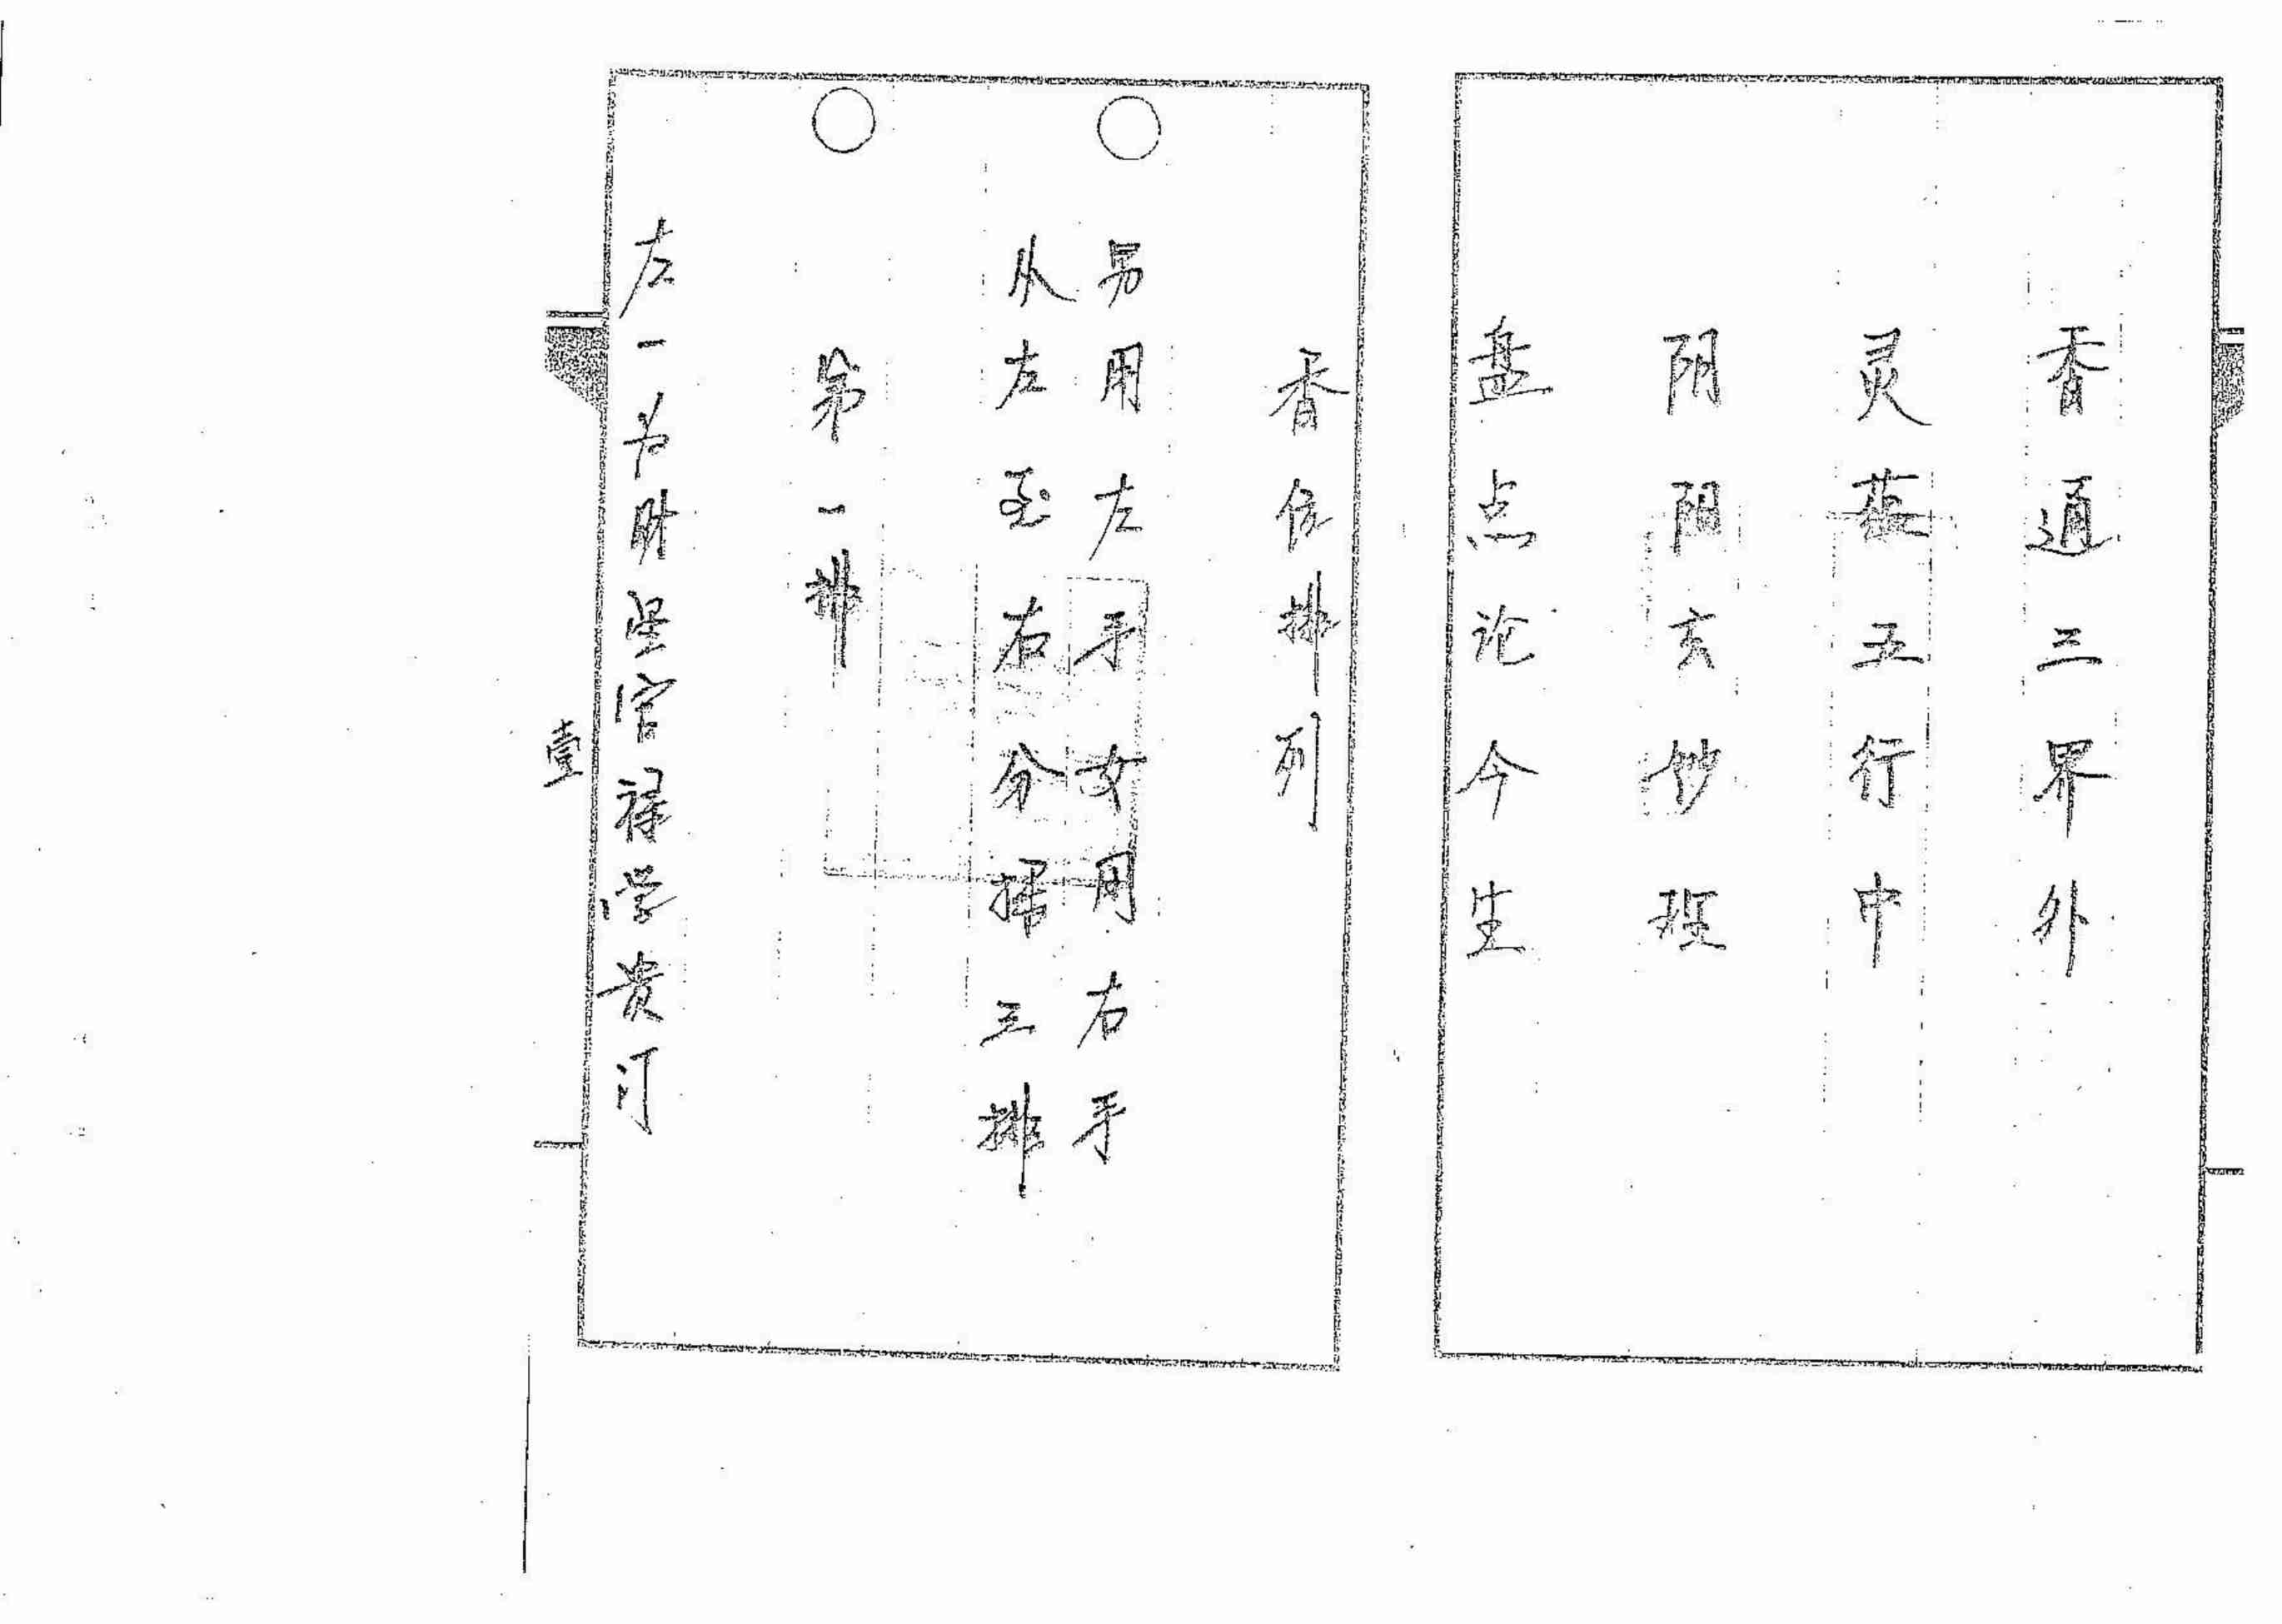 香通三界外
灵藏五行中
阴阳玄妙理
盘点论今生
香位排列
男用左手女用右手
从左至右分插三排
第一排
左一为财星官禄学贵门
壹